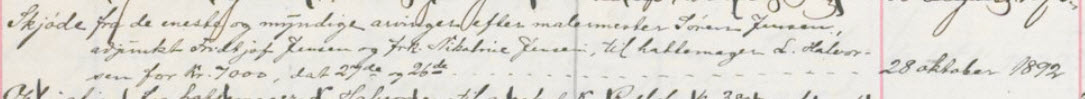 Skjøde fra de eneste og myndige arvinger efter malermester Søren Jensen,
adjunkt Fridtjof Jensen og frk. Nikoline Jensen, til hattemager L. Halvor-
sen for Kr. 7000, dat 27de og 26de 28 oktober 1892